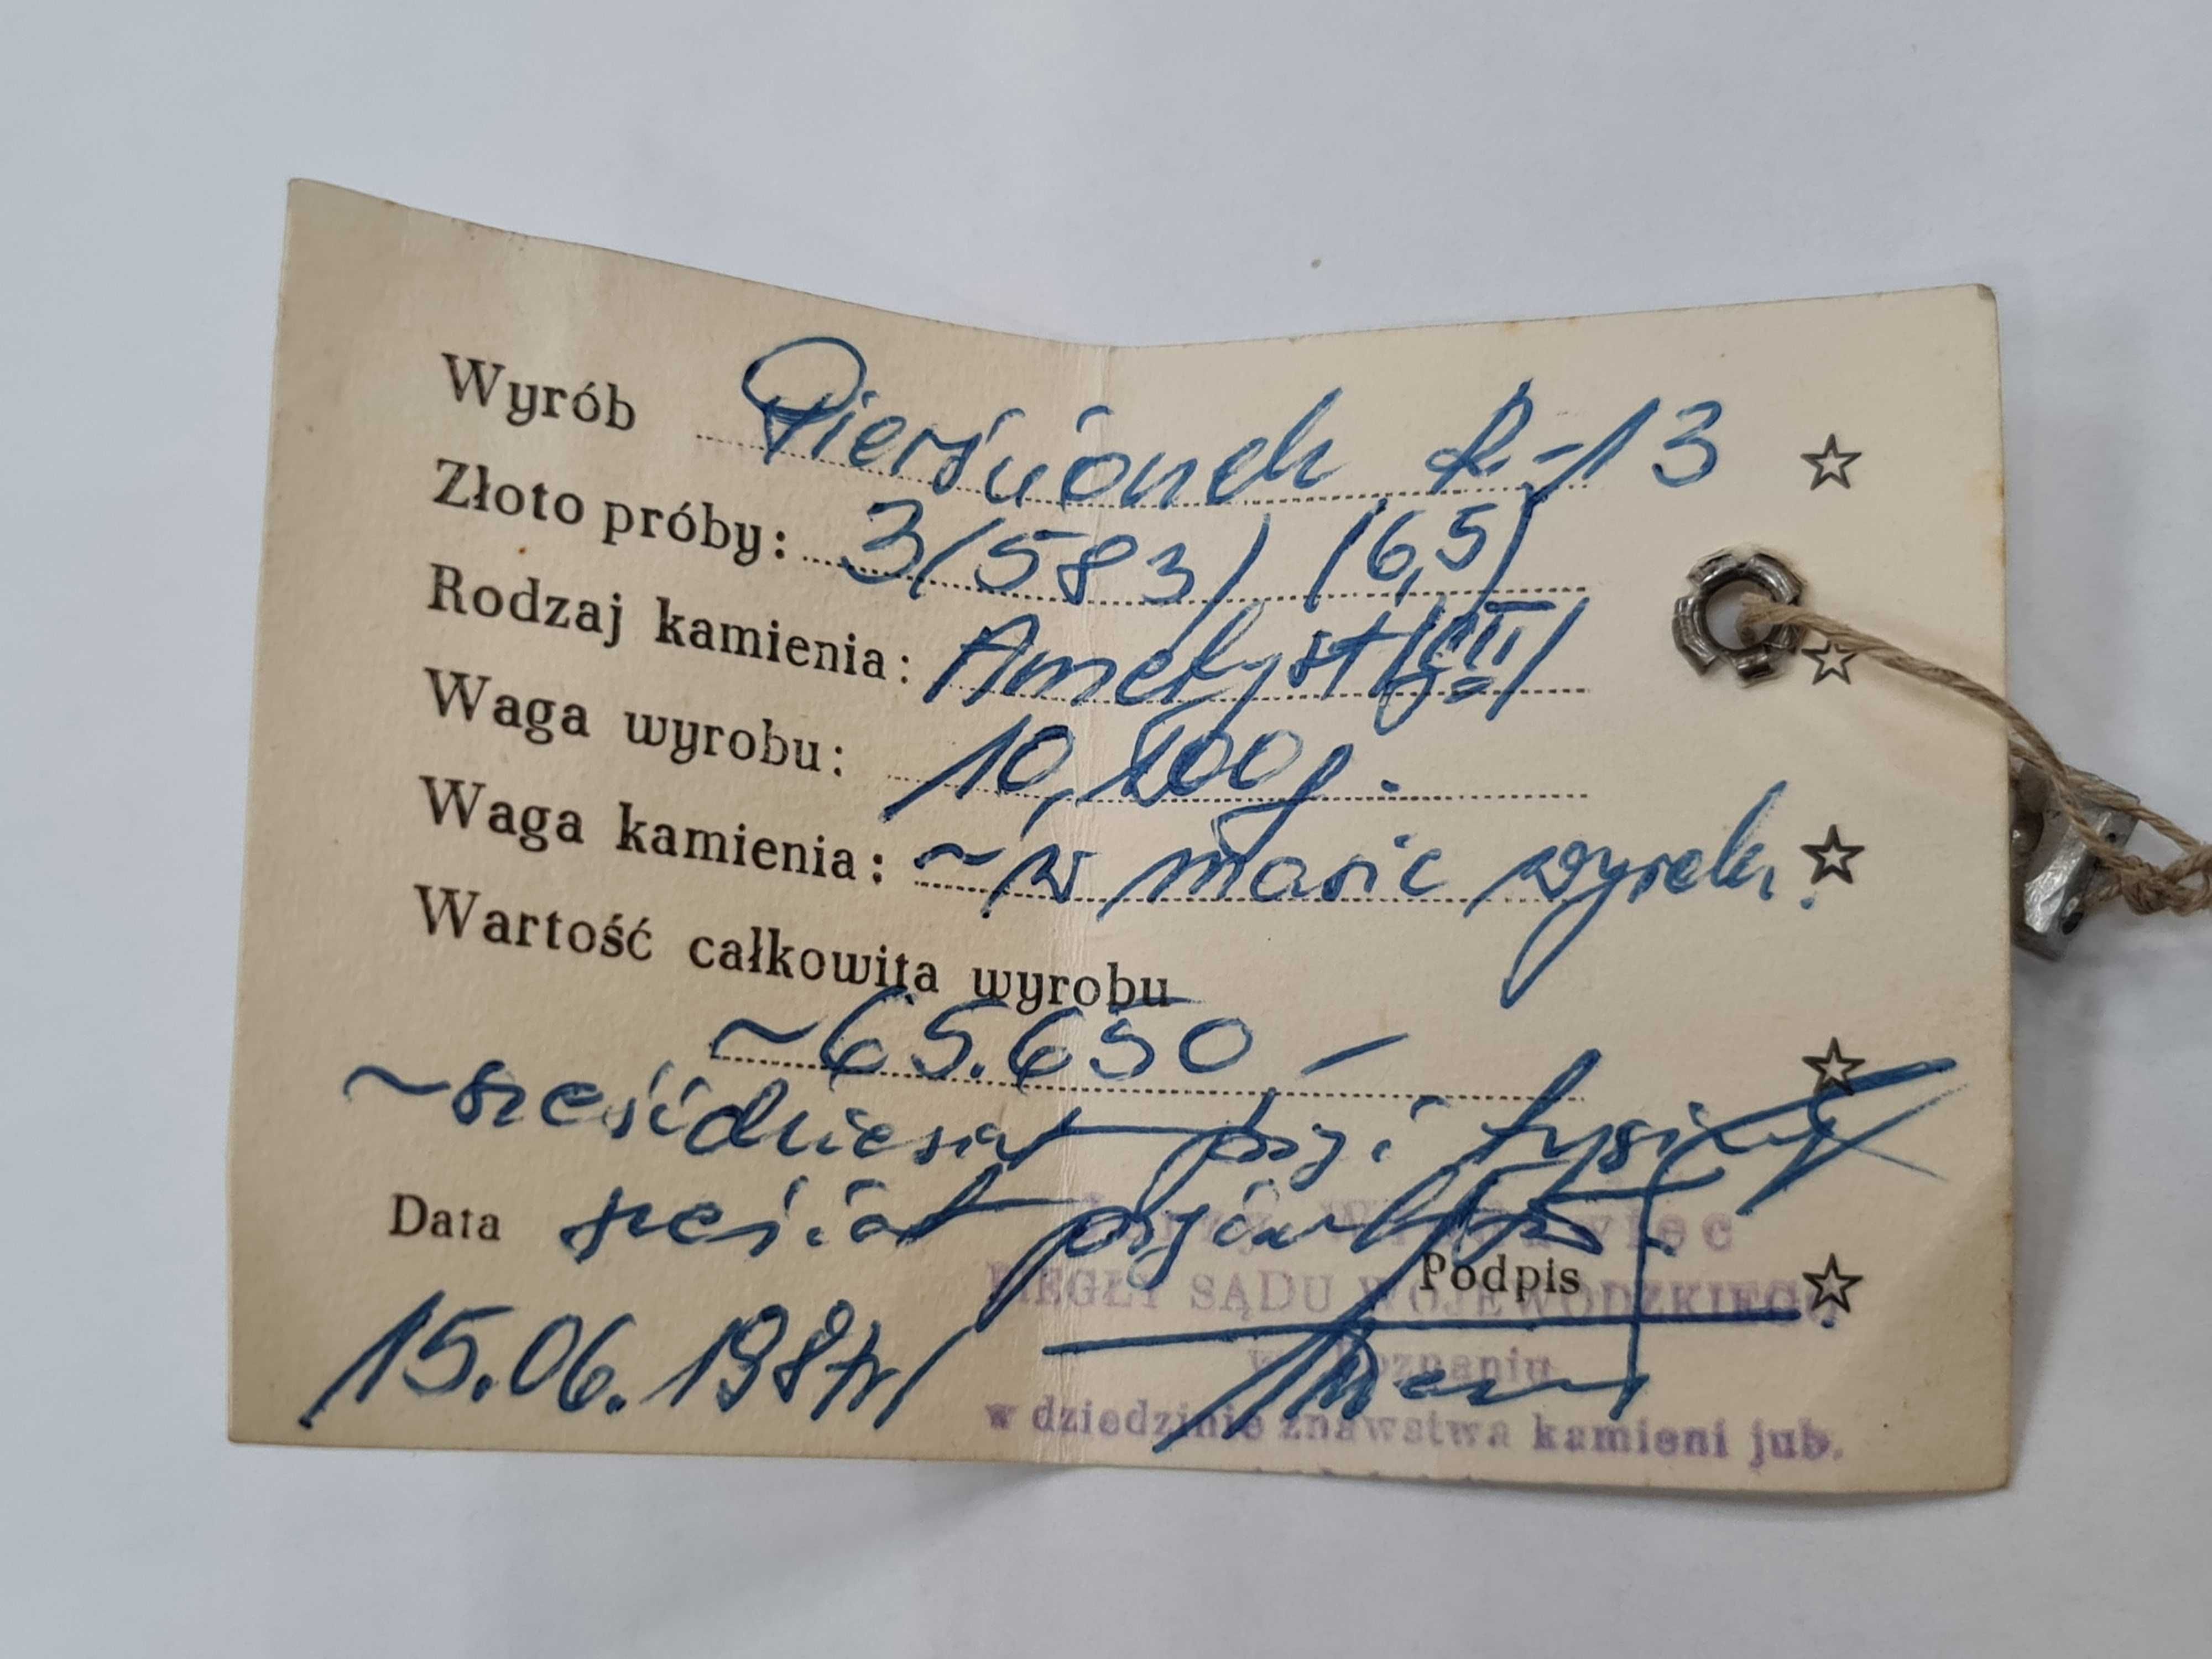 Wyrób Pierścionek R-13
Złoto próby: 3/583/ /6,5/
Rodzaj kamienia: Ametyst
Waga wyrobu: 10,100g.
Waga kamienia: ~ w masie wyrobu.
Wartość całkowita wyrobu
~65.650 -
~sześćdziesiąt pięć tysięcy
Data sześćset pięćdziesiąt
Podpis
BIEGŁY SĄDU WOJEWÓDZKIEGO
15.06.1987r
w Poznaniu
w dziedzinie znawstwa kamieni jub.